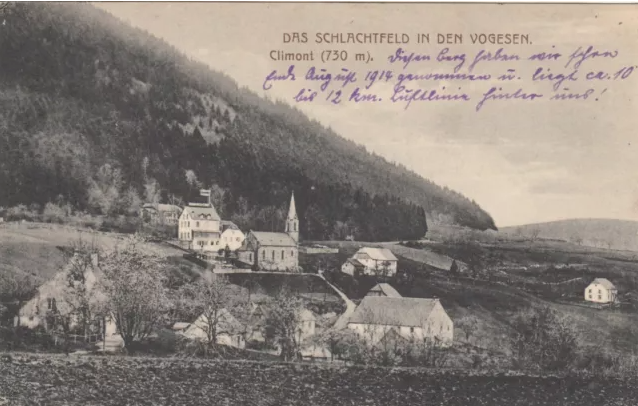 DAS SCHLACHTFELD IN DEN VOGESEN.
Climont (730 m). Diesen Berg haben wir schon
Ende August 1914 genommen u. liegt ca. 10
bis 12 km. Luftlinie hinter uns!